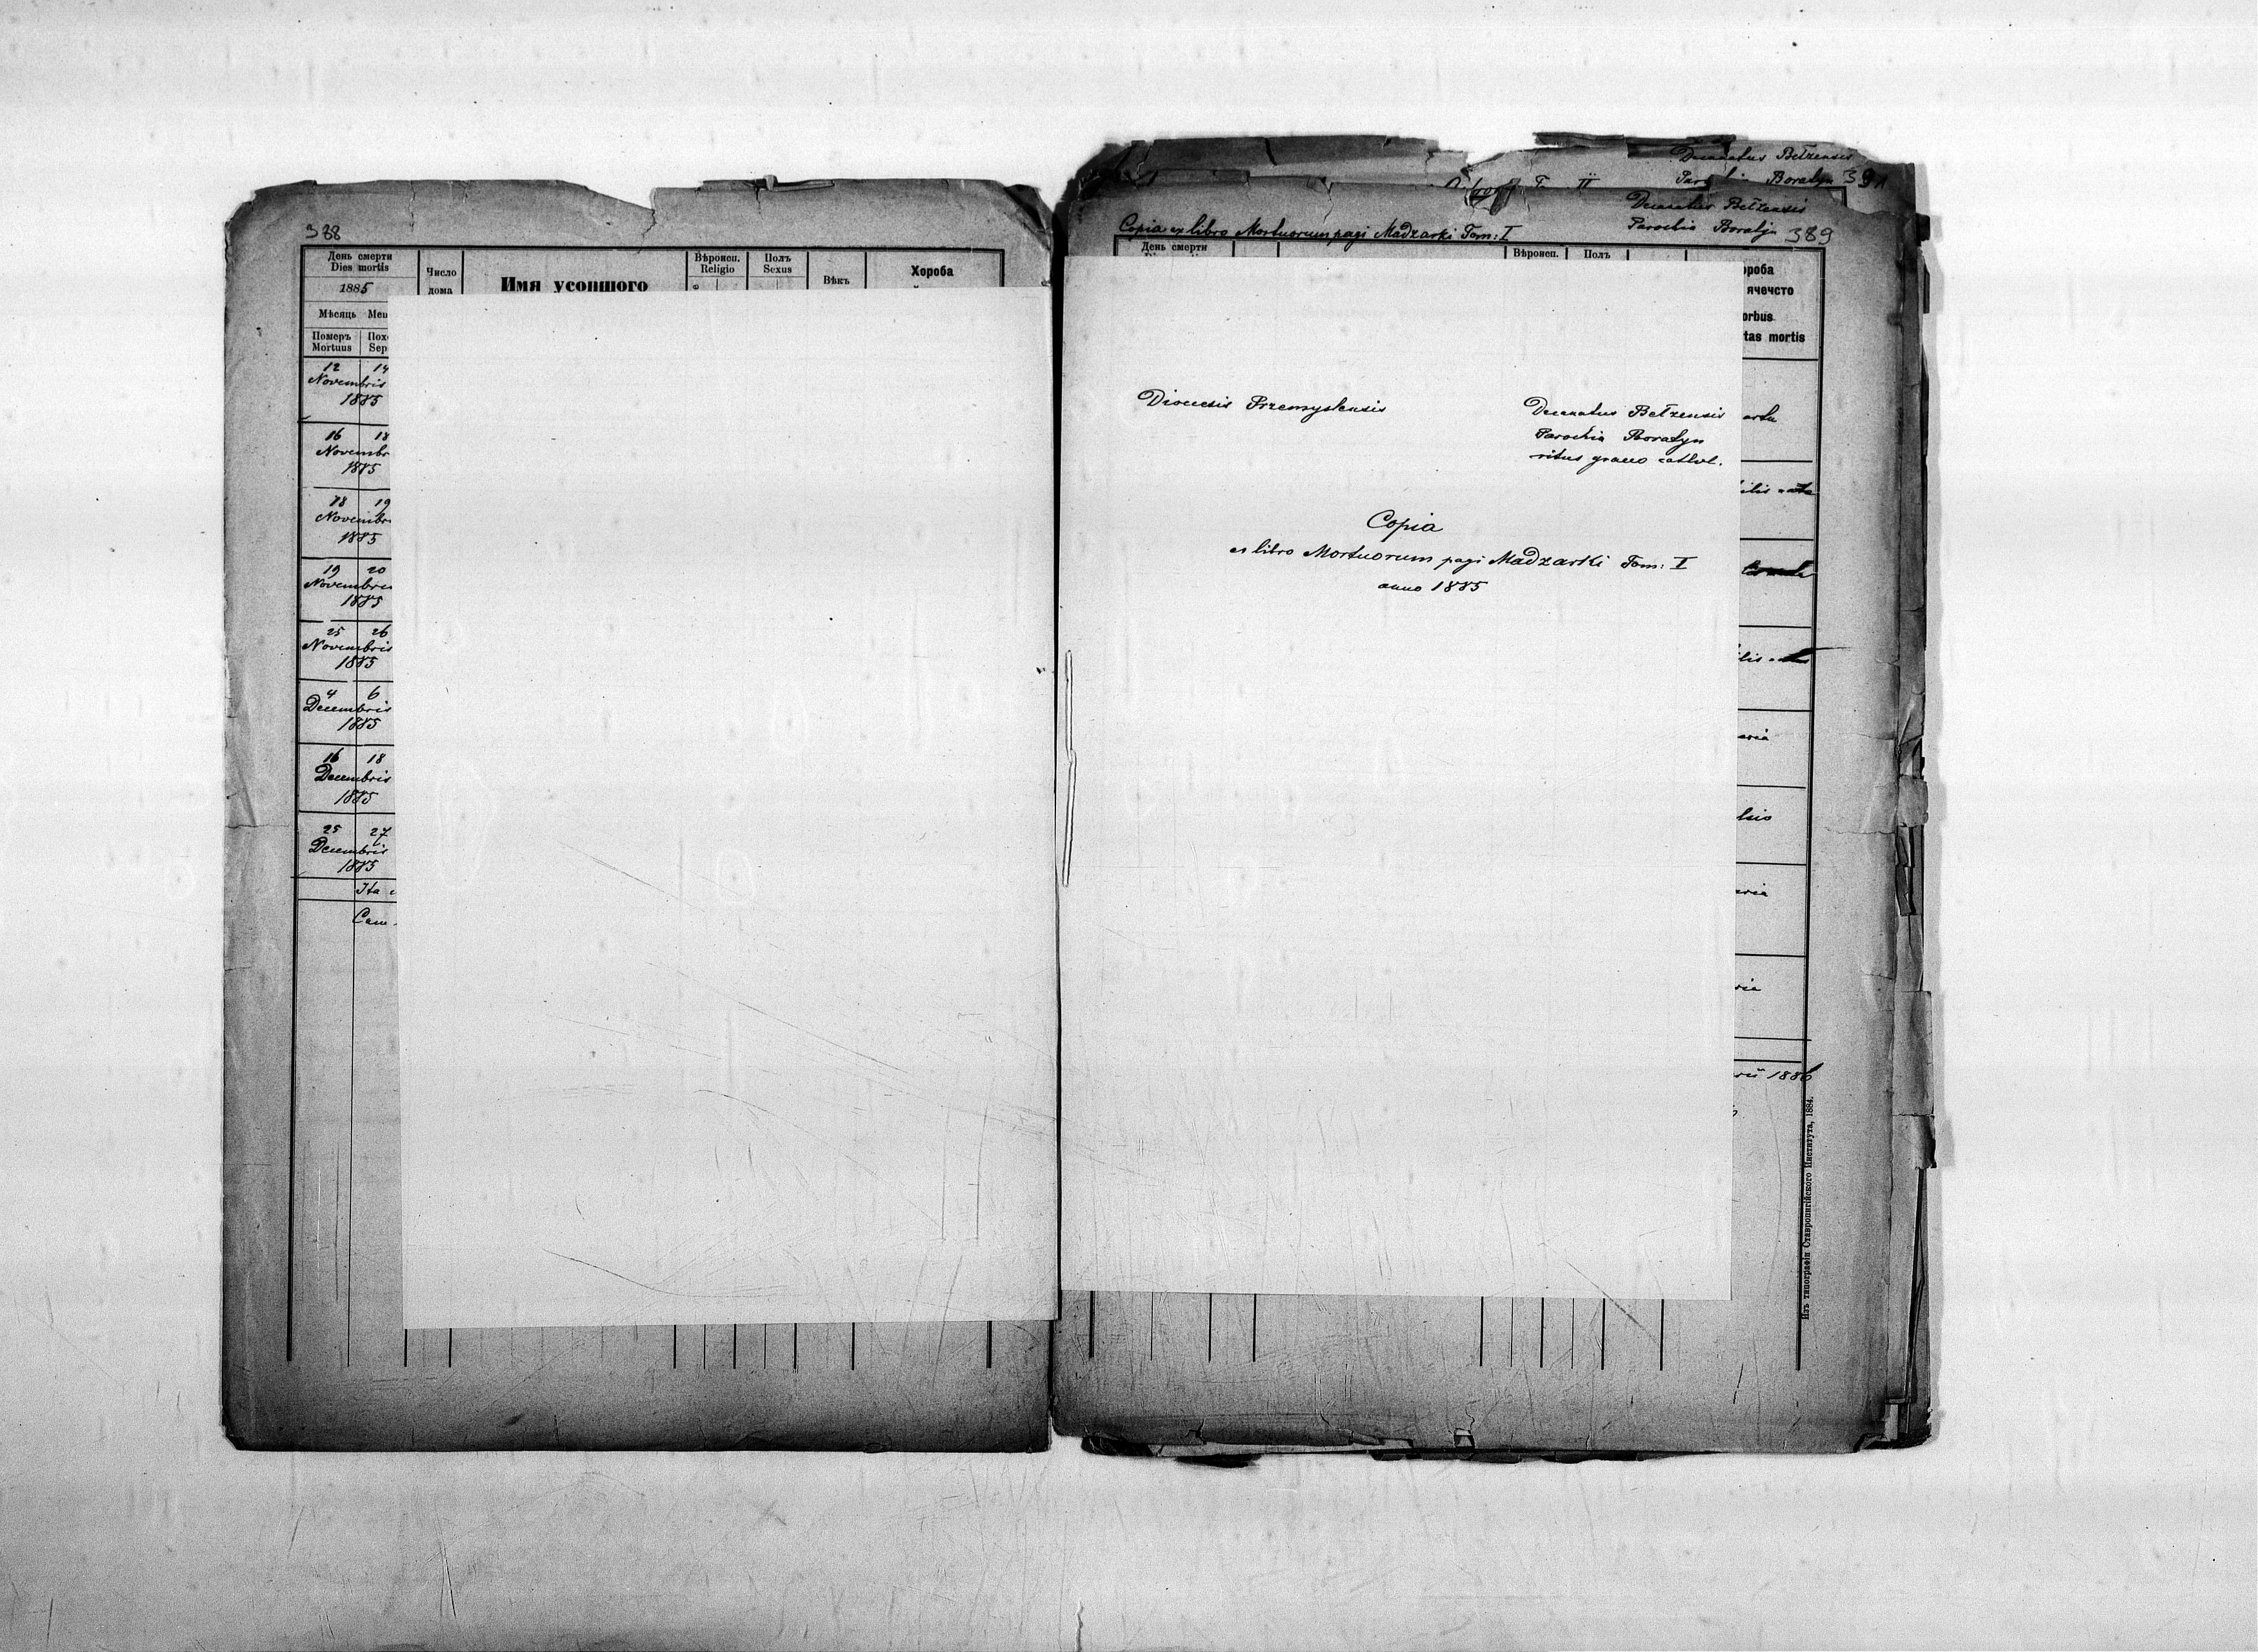 388
День смерти
Dies mortis
1885
Число
дома
Имя усопшого
Вѣроисп.
Religio
Полъ
Sexus
Вѣкъ
Хороба
Мѣсяць Men
Померъ
Mortuus
Пох
Sep
12 14
Novembris
1885
16 18
Novembr
1885
18 19
Novembr
1885
19 20
Novembri
1885
25 26
Novembris
1885
4 6
Decembris
1885
16 18
Decembris
1885
25 27
Decembris
1885
Ita
Decanatus Bełzensis
Boratyn 391
Decanatus Bełzensis
Parochia Boratyn 389
Copia ex libro Mortuorum pagi Madzarki Tom: I
День смерти
Вѣроисп.
Полъ
ороба
ячечсто
orbus
tas mortis
Dioecesis Przemyslensis
Decanatus Bełzensis
Parochia Boratyn
ritus graeco cathol.
Copia
ex libro Mortuorum pagi Madzarki Tom: I
anno 1885
1886
Изъ типографіи Ставропигійского Института, 1884.